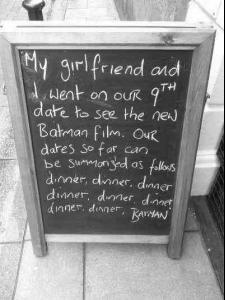 My girlfriend and
I went on our 9TH
date to see the new
Batman Film. Our
dates so far can
be summarized as follows
dinner, dinner, dinner
dinner, dinner, dinner
dinner, dinner, BATMAN